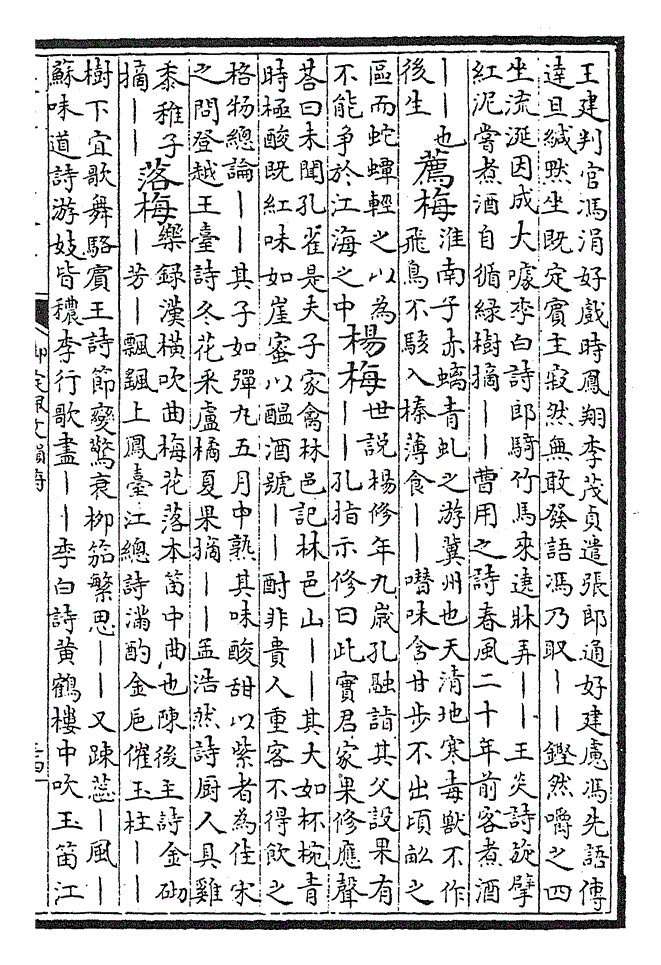 王建判官馮涓好戲時鳳翔李茂貞遣張郎通好建慮馮先語傳
達旦緘黙坐既定賓主寂然無敢發語馮乃取——鏗然嚼之四
坐流涎因成大噱李白詩郎騎竹馬來遶牀弄——王炎詩旋擘
紅泥嘗煮酒自循緑樹摘——曹用之詩春風二十年前客煮酒
——也
後生
薦梅
淮南子赤螭青虬之游冀州也天清地寒毒獸不作
飛鳥不駭入榛薄食——噆味含甘步不出頃畝之
區而蛇蟺輕之以為
不能爭於江海之中
楊梅
世説楊修年九歳孔融詣其父設果有
——孔指示修曰此實君家果修應聲
荅曰未聞孔雀是夫子家禽林邑記林邑山——其大如杯椀青
時極酸既紅味如崖蜜以醖酒號——酎非貴人重客不得飲之
格物總論——其子如彈丸五月中熟其味酸甜以紫者為佳宋
之問登越王臺詩冬花采盧橘夏果摘——孟浩然詩厨人具雞
黍稚子
摘——
落梅
樂録漢横吹曲梅花落本笛中曲也陳後主詩金砌
——芳—飄颻上鳳臺江總詩滿酌金巵催玉柱——
樹下宜歌舞駱賓王詩節變驚衰柳笳繁思——又疎蕊—風—
蘇味道詩游妓皆穠李行歌盡——李白詩黄鶴樓中吹玉笛江